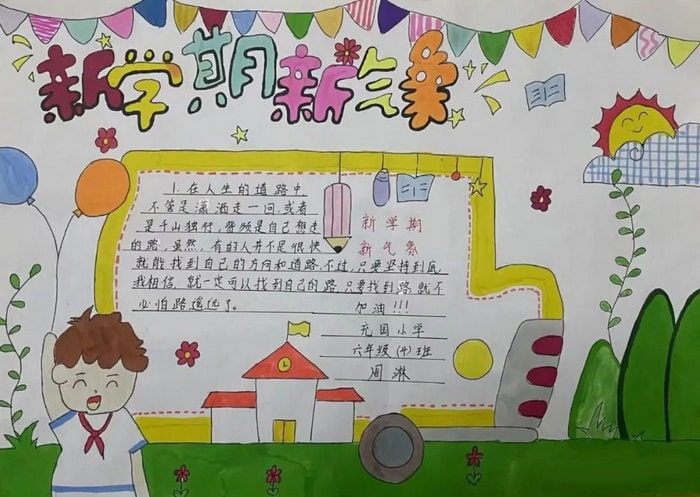 新学期新气象
1.在人生的道路中
不管是潇洒走一问,或者
是千山独行,皆须是自己想走
的路,虽然,有的人并不是很快
就能找到自己的方向和道路.不过,只要坚持到底,
我相信 就一定可以找到自己的路,只要找到路,就不
必怕路遥远了。
新学期
新气象
加油!!!
充国小学
六年级(4)班
周淋